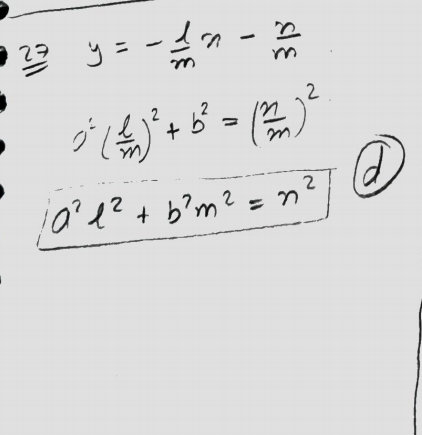 27 y = - l/m x - n/m
a² (l/m)² + b² = (n/m)²
a² l² + b² m² = n² d